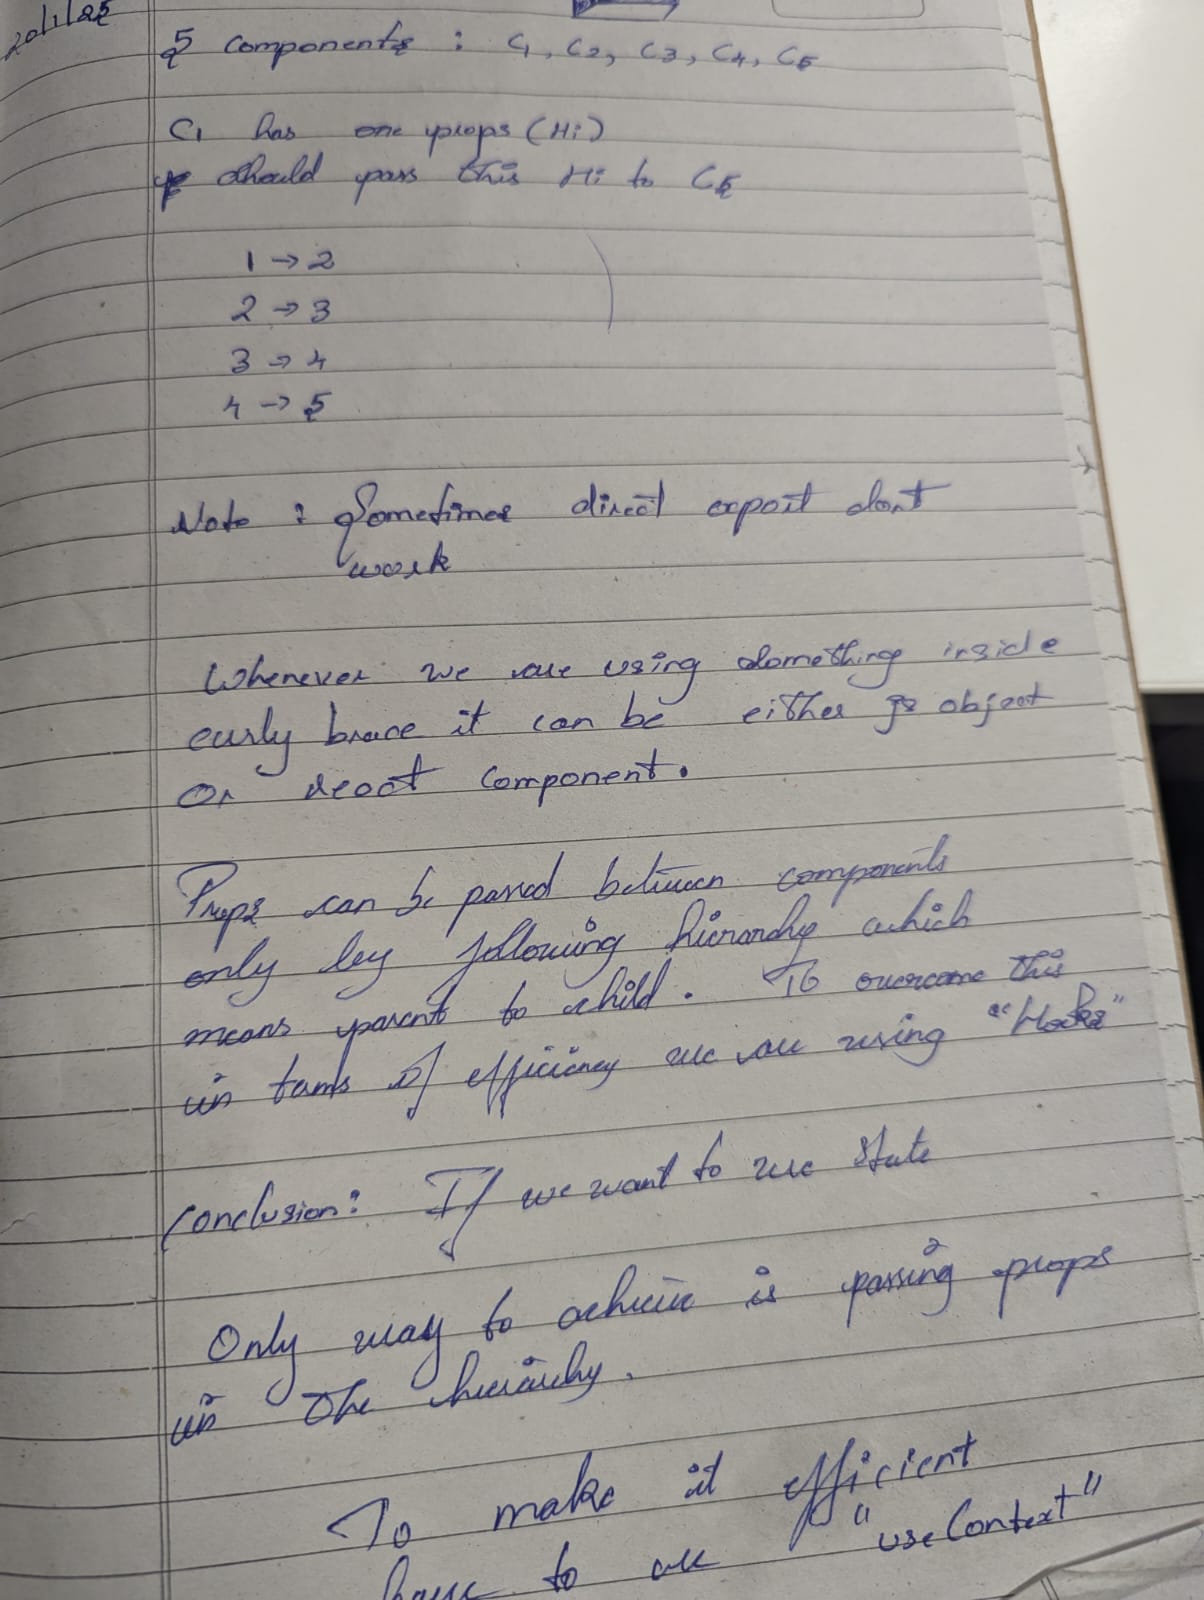 20/1/25
5 components : C1, C2, C3, C4, C5
C1 has one props (Hi)
should pass this Hi to C5
1 → 2
2 → 3
3 → 4
4 → 5
Note : Sometimes direct export dont
work
Whenever we are using something inside
curly brace it can be either js object
Or react component.
Props can be passed between components
only by following hierarchy which
means parent to child. To overcome this
in terms of efficiency we are using "Hooks"
Conclusion: If we want to use state
Only way to achieve is passing props
in the hierarchy.
To make it efficient
have to use "useContext"